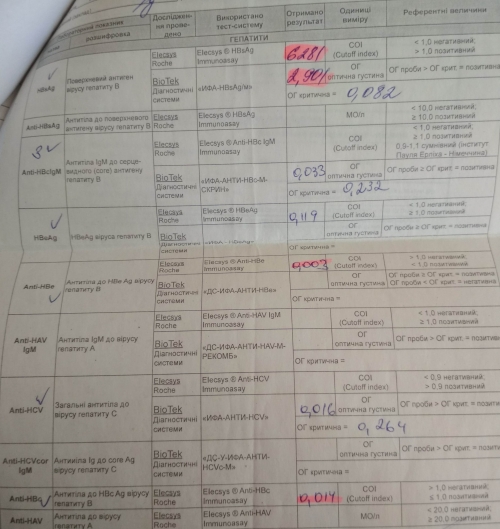 Досліджен-
ня прове-
дено
Використано
тест-систему
Отримано
результат
Одиниці
виміру
Референтні величини
ГЕПАТИТИ
HBsAg
Поверхневий антиген
вірусу гепатиту В
Elecsys
Roche
Elecsys ® HBsAg
Immunoasay
6281
COI
(Cutoff index)
< 1,0 негативний;
> 1,0 позитивний
BioTek
Діагностичні
системи
«ИФА-HBsAg/м»
2,901
ОГ
оптична густина
ОГ проби > ОГ крит. = позитив
ОГ критична = 0,082
Anti-HBsAg
Антитіла до поверхневого
антигену вірусу гепатиту В
Elecsys
Roche
Elecsys ® HBsAg
Immunoasay
МО/л
< 10,0 негативний;
≥ 10,0 позитивний
Anti-HBcIgM
Антитіла IgM до серце-
видного (core) антигену
гепатиту В
Elecsys
Roche
Elecsys ® Anti-HBc IgM
Immunoasay
COI
(Cutoff index)
< 1,0 негативний;
≥ 1,0 позитивний
0,9-1,1 сумнівний (інститут
BioTek
Діагностичні
системи
«ИФА-АНТИ-HBc-М-
СКРИН»
0,033
ОГ
оптична густина
ОГ проби ≥ ОГ крит. = позити
ОГ критична = 0,232
HBsAg
HBeAg вірусу гепатиту В
Elecsys
Roche
Elecsys ® HBeAg
Immunoasay
0,119
COI
(Cutoff index)
< 1,0 негативний;
≥ 1,0 позитивний
BioTek
Діагностичні
системи
ОГ
оптична густина
ОГ проби ≥ ОГ крит. = позитив
ОГ критична =
Anti-HBe
Антитіла до HBe Ag вірусу
гепатиту В
Elecsys
Roche
Elecsys ® Anti-HBe
Immunoasay
0,003
COI
(Cutoff index)
> 1,0 негативний;
< 1,0 позитивний
BioTek
Діагностичні
системи
«ДС-ИФА-АНТИ-HBe»
ОГ
оптична густина
ОГ проби ≥ ОГ крит. = позитив
ОГ проби < ОГ крит. = негатив
ОГ критична =
Anti-HAV
IgM
Антитіла IgM до вірусу
гепатиту А
Elecsys
Roche
Elecsys ® Anti-HAV IgM
Immunoasay
COI
(Cutoff index)
< 1,0 негативний;
≥ 1,0 позитивний
BioTek
Діагностичні
системи
«ДС-ИФА-АНТИ-HAV-М-
РЕКОМБ»
ОГ
оптична густина
ОГ проби > ОГ крит. = позитив
ОГ критична =
Anti-HCV
Загальні антитіла до
вірусу гепатиту С
Elecsys
Roche
Elecsys ® Anti-HCV
Immunoasay
COI
(Cutoff index)
< 0,9 негативний;
> 0.9 позитивний
BioTek
Діагностичні
системи
«ИФА-АНТИ-HCV»
0,016
ОГ
оптична густина
ОГ проби > ОГ крит. = позити
ОГ критична = 0,264
Anti-HCVcor
IgM
Антитіла Ig до core Ag
вірусу гепатиту С
BioTek
Діагностичні
системи
«ДС-У-ИФА-АНТИ-
HCVo-М»
ОГ
оптична густина
ОГ проби > ОГ крит. = позити
ОГ критична =
Anti-HBc
Антитіла до HBc Ag вірусу
гепатиту В
Elecsys
Roche
Elecsys ® Anti-HBc
Immunoasay
0,014
COI
(Cutoff index)
> 1,0 негативний;
≤ 1,0 позитивний
Anti-HAV
Антитіла до вірусу
гепатиту А
Elecsys
Roche
Elecsys ® Anti-HAV
Immunoasay
МО/л
< 20,0 негативний;
≥ 20,0 позитивний